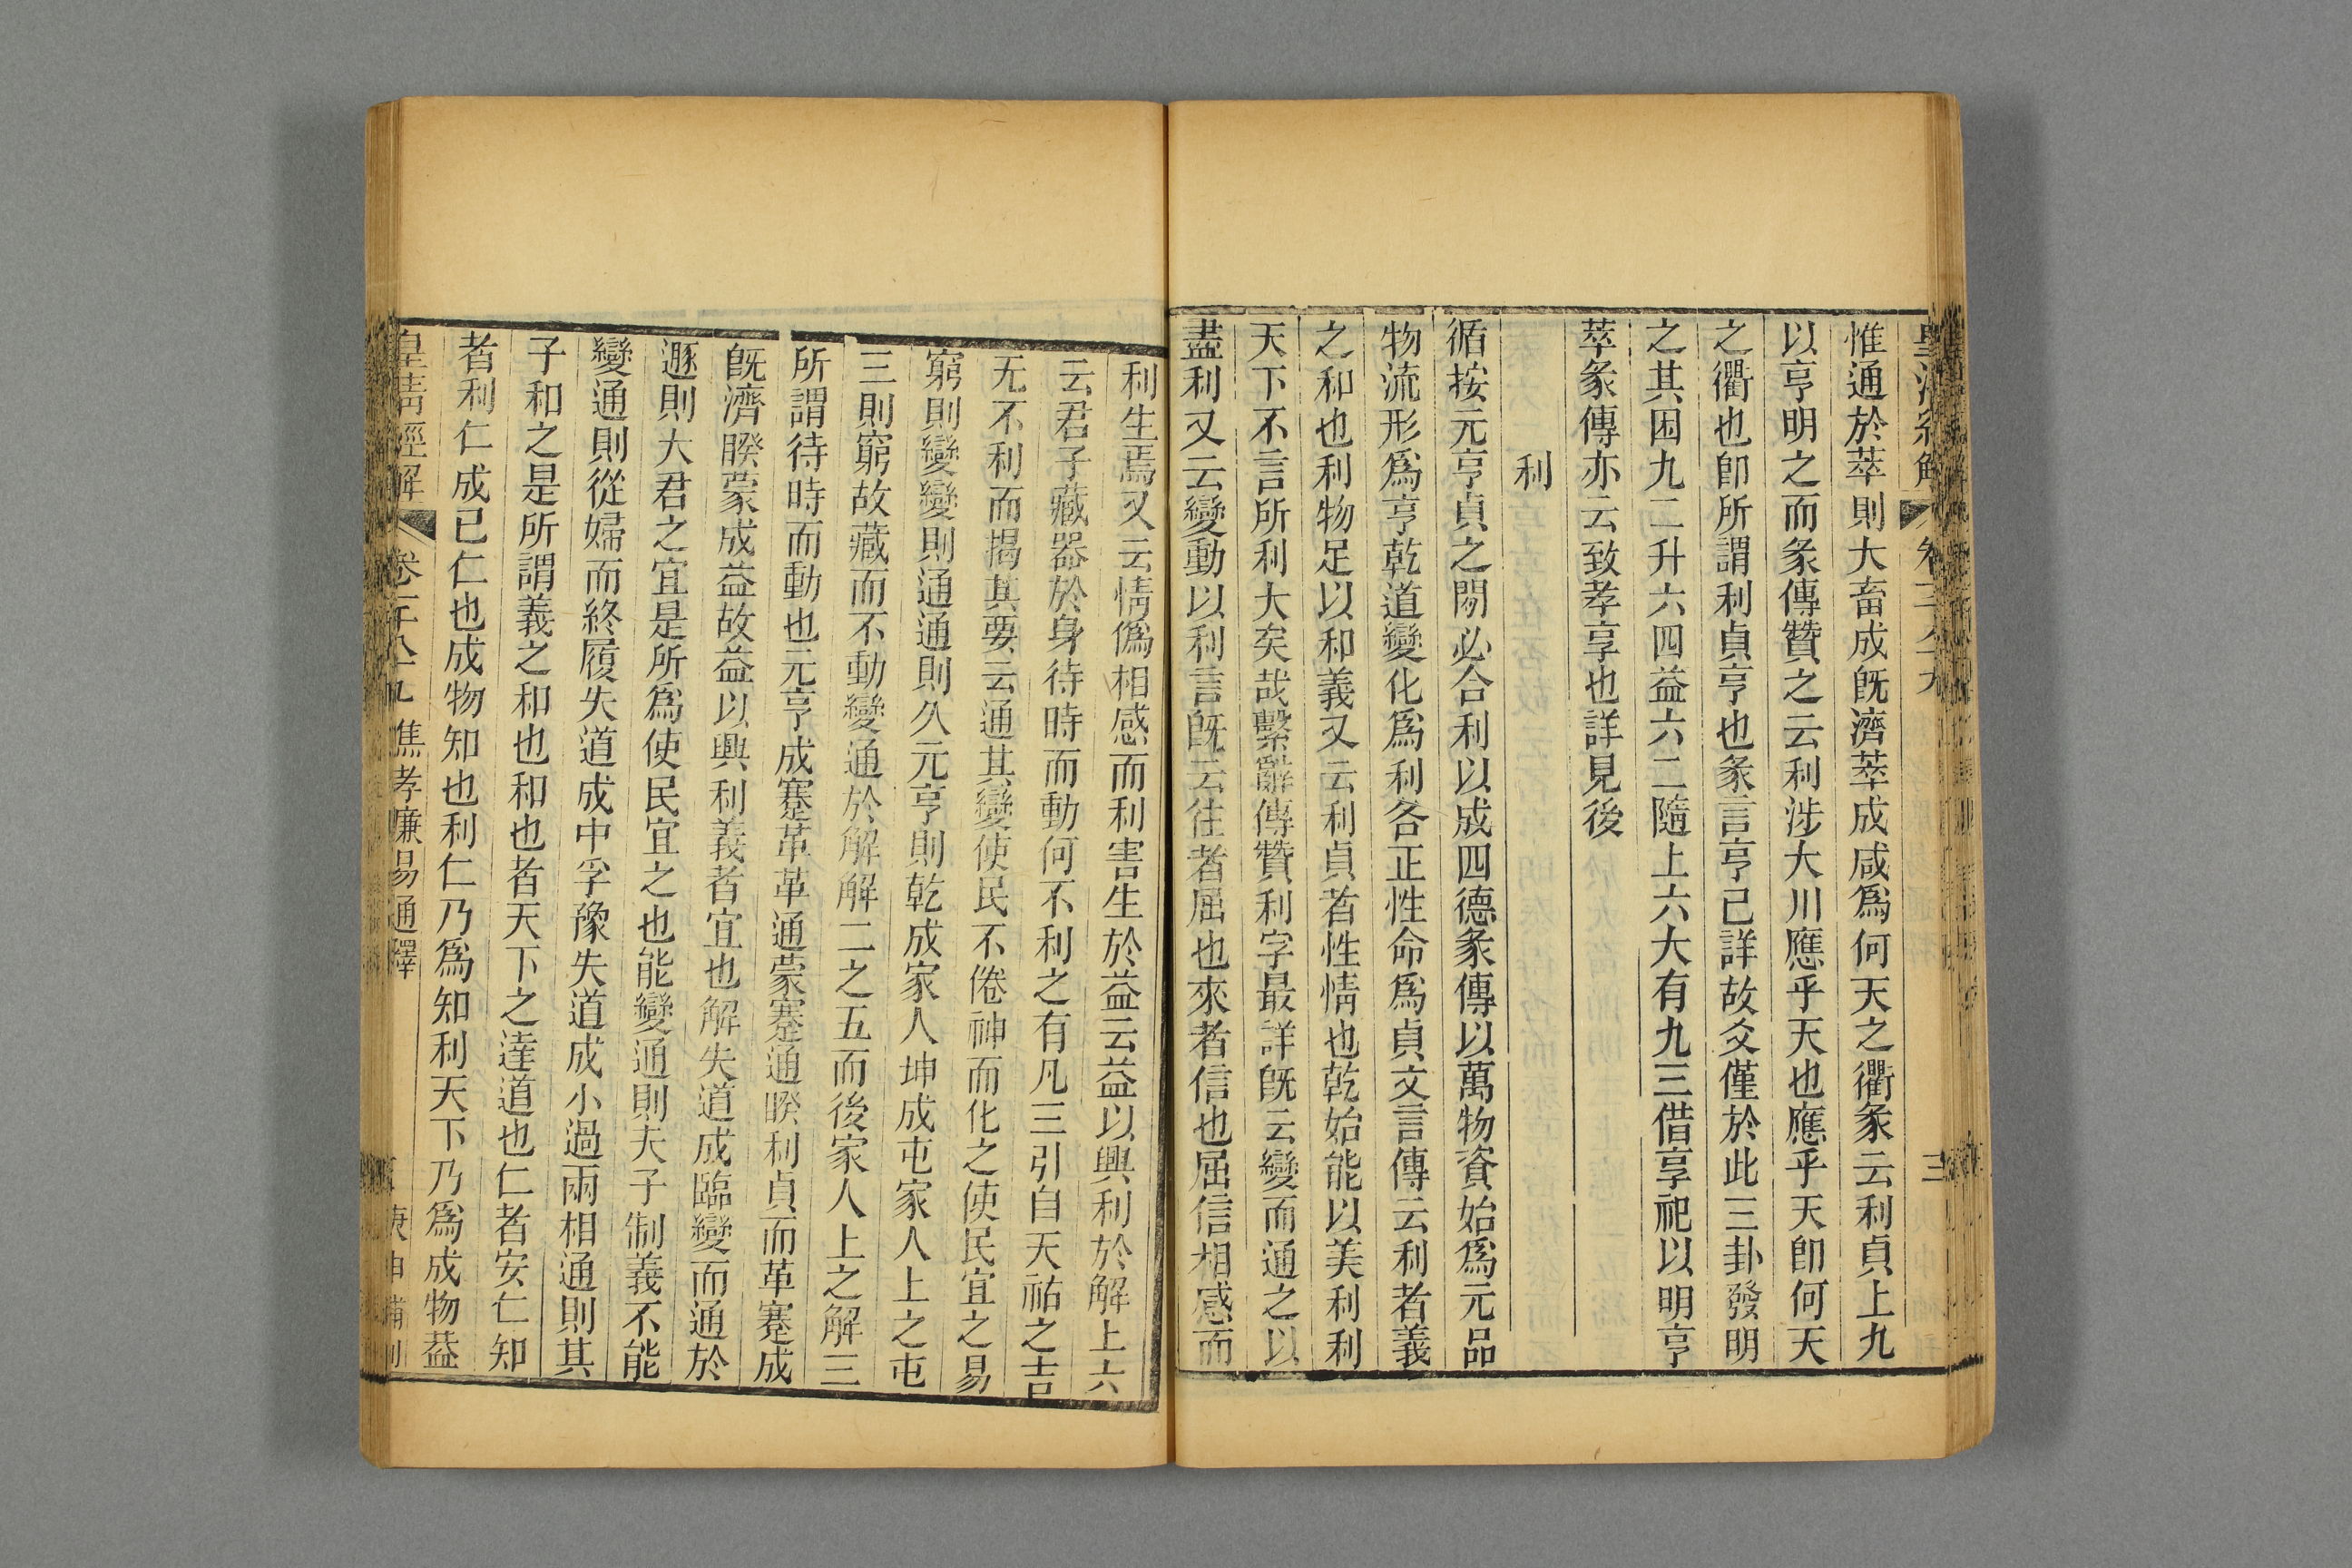 皇清經解 卷千八十九 三
惟通於萃則大畜成旣濟萃成咸爲何天之衢彖云利貞上九
以亨明之而彖傳贊之云利涉大川應乎天也應乎天卽何天
之衢也卽所謂利貞亨也彖言亨己詳故爻僅於此三卦發明
之其困九二升六四益六二隨上六大有九三借享祀以明亨
萃彖傳亦云致孝享也詳見後
利
循按元亨貞之閒必合利以成四德彖傳以萬物資始爲元品
物流形爲亨乾道變化爲利各正性命爲貞文言傳云利者義
之和也利物足以和義又云利貞者性情也乾始能以美利利
天下不言所利大矣哉繫辭傳贊利字最詳旣云變而通之以
盡利又云變動以利言旣云往者屈也來者信也屈信相感而
利生焉又云情僞相感而利害生於益云益以興利於解上六
云君子藏器於身待時而動何不利之有凡三引自天祐之吉
无不利而揭其要云通其變使民不倦神而化之使民宜之易
窮則變變則通通則久元亨則乾成家人坤成屯家人上之屯
三則窮故藏而不動變通於解解二之五而後家人上之解三
所謂待時而動也元亨成蹇革革通蒙蹇通睽利貞而革蹇成
旣濟睽蒙成益故益以興利義者宜也解失道成臨變而通於
遯則大君之宜是所爲使民宜之也能變通則夫子制義不能
變通則從婦而終履失道成中孚豫失道成小過兩相通則其
子和之是所謂義之和也和也者天下之達道也仁者安仁知
者利仁成已仁也成物知也利仁乃爲知利天下乃爲成物益
皇清經解 卷千八十九 焦孝廉易通釋 庚申補刊